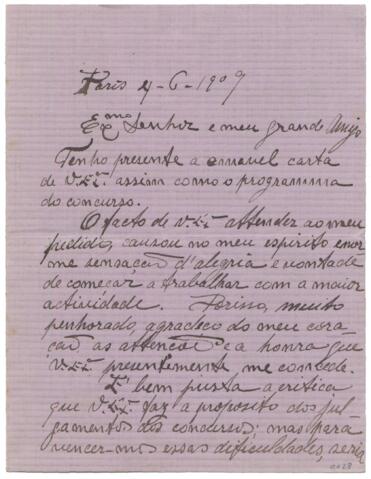 Paris 4-6-1909
Exmo Senhor e meu grande Amigo
Tenho presente a amavel carta
de V. Ex. assim como o programma
do concurso.
O facto de V. Ex. attender ao meu
pedido, causou no meu espirito enor
me sensação d'alegria e vontade
de começar a trabalhar com a maior
actividade. Porisso, muito
penhorado, agradeço do meu cora
ção as attenções e a honra que
V. Ex. presentemente me concede.
E' bem justa a critica
que V. Ex. faz a proposito dos jul
gamentos dos concursos; mas para
vencer-mos essas dificuldades, seria